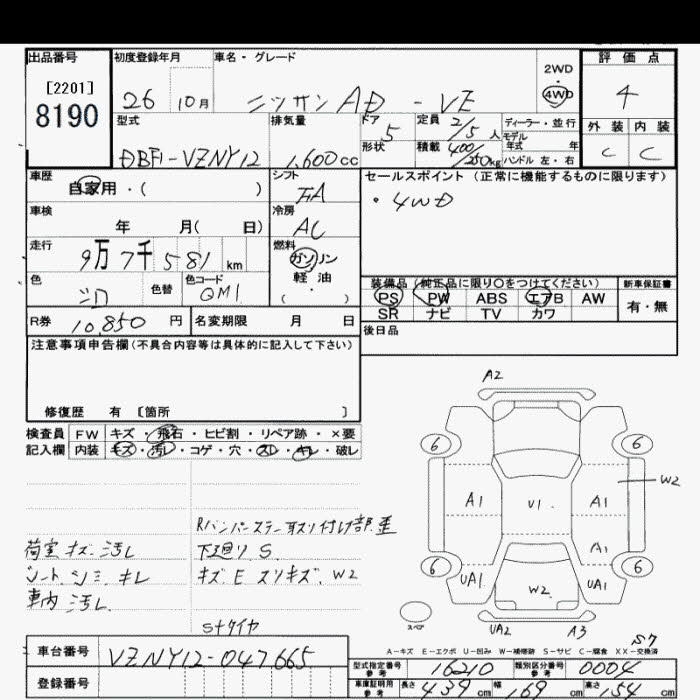 出品番号 初度登録年月 車名・グレード 2WD 評価点
[2201] 8190 26 10月 ニッサン AD - VE 4WD 4
型式 排気量 ドア 定員 ディーラー・並行 外装 内装
DBF1-VZNY12 1,600cc 5 2/5人 モデル年式 年 C C
形状 積載 400/250kg ハンドル 左・右
車歴 シフト セールスポイント (正常に機能するものに限ります)
自家用・( ) FA ・4WD
車検 冷房
年 月( 日) AC
走行 燃料
9万7千581km ガソリン
色 色替 色コード 軽油
QM1 (・)
装備品(純正品に限り○をつけてください) 新車保証書
PS PW ABS エアB AW 有・無
SR ナビ TV カワ
R券 10,850円 名変期限 月 日 後日品
注意事項申告欄(不具合内容等は具体的に記入して下さい)
修復歴 有 [箇所 ]
検査員 FW キズ・飛石・ヒビ割・リペア跡・×要
記入欄 内装 キズ・汚レ・コゲ・穴・スレ・キレ・破レ
A2
6 6
W2
A1 U1 A1
A1
6 6
UA1 W2 UA1
スペア
UA2 A3 S7
Rバンパーステー 取付け部 歪
荷室 キズ.汚レ 下廻リ S
シート シミ キレ キズ E スリキズ. W2
車内 汚レ
Sナタイヤ
A-キズ E-エクボ U-凹み W-補修跡 S-サビ C-腐食 XX-交換済
車台番号 VZNY12-047665
型式指定番号参考 16210 類別区分番号参考 0004
登録番号 車庫証明用参考 長さ 439cm 幅 169cm 高さ 154cm